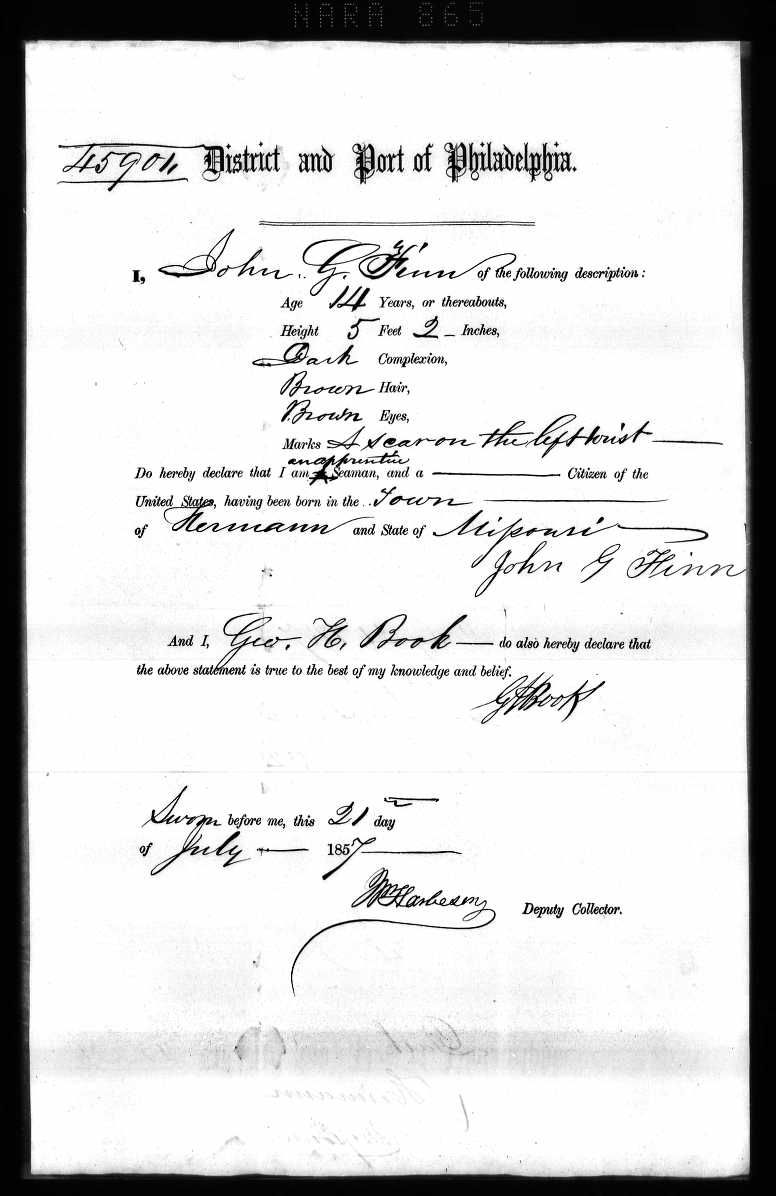 NARA 865
45901, District and Port of Philadelphia.
I, John G. Finn of the following description:
Age 14 Years, or thereabouts,
Height 5 Feet 2 Inches,
Dark Complexion,
Brown Hair,
Brown Eyes,
Marks A scar on the left wrist
an apprentice
Do hereby declare that I am Seaman, and a Citizen of the
United States, having been born in the Town
of Hermann and State of Missouri
John G Finn
And I, Geo. H. Book do also hereby declare that
the above statement is true to the best of my knowledge and belief.
GHBook
Sworn before me, this 21 day
of July 1857
Wm Harbeson
Deputy Collector.
Hermann